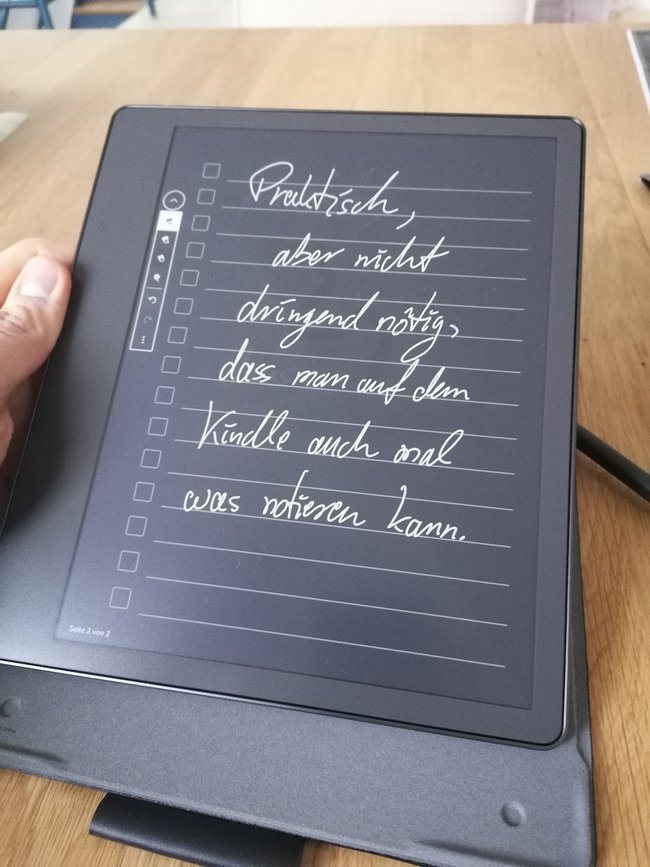 Praktisch,
aber nicht
dringend nötig,
dass man auf dem
Kindle auch mal
was notieren kann.
Seite 2 von 2